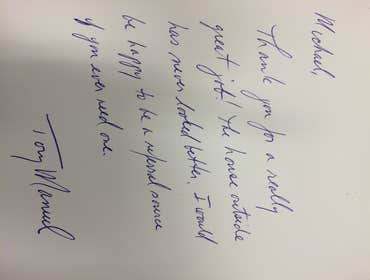 Michael,
Thank you for a really
great job! The house outside
has never looked better. I would
be happy to be a referral source
if you ever need one.
Tony Manuel